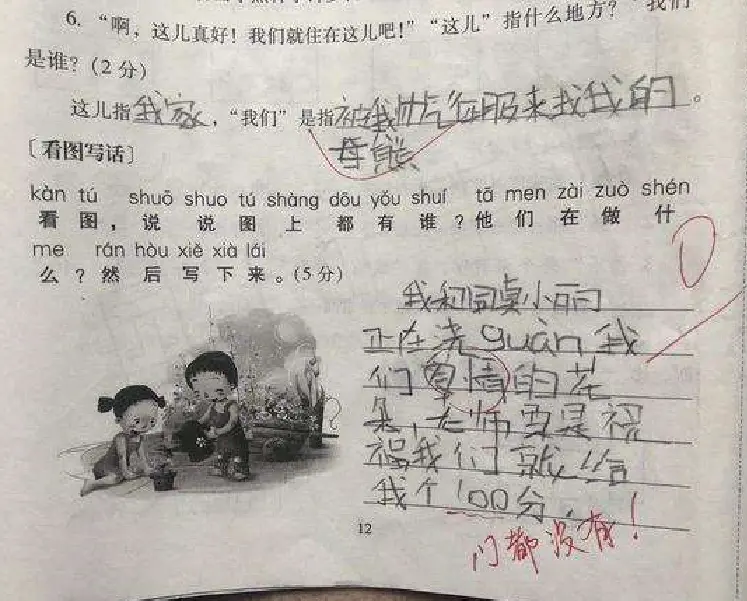 6. “啊，这儿真好！我们就住在这儿吧！”“这儿”指什么地方？“我们
是谁？(2分)
这儿指我家，“我们”是指被我帅气征服来找我的。
母熊
〔看图写话〕
kàn tú shuō shuo tú shàng dōu yǒu shuí tā men zài zuò shén
看图，说说图上都有谁？他们在做什
me rán hòu xiě xià lái
么？然后写下来。(5分)
0
我和同桌小丽
正在浇guàn我
们爱情的花
朵，老师要是祝
福我们就给
我个100分，
12
门都没有！